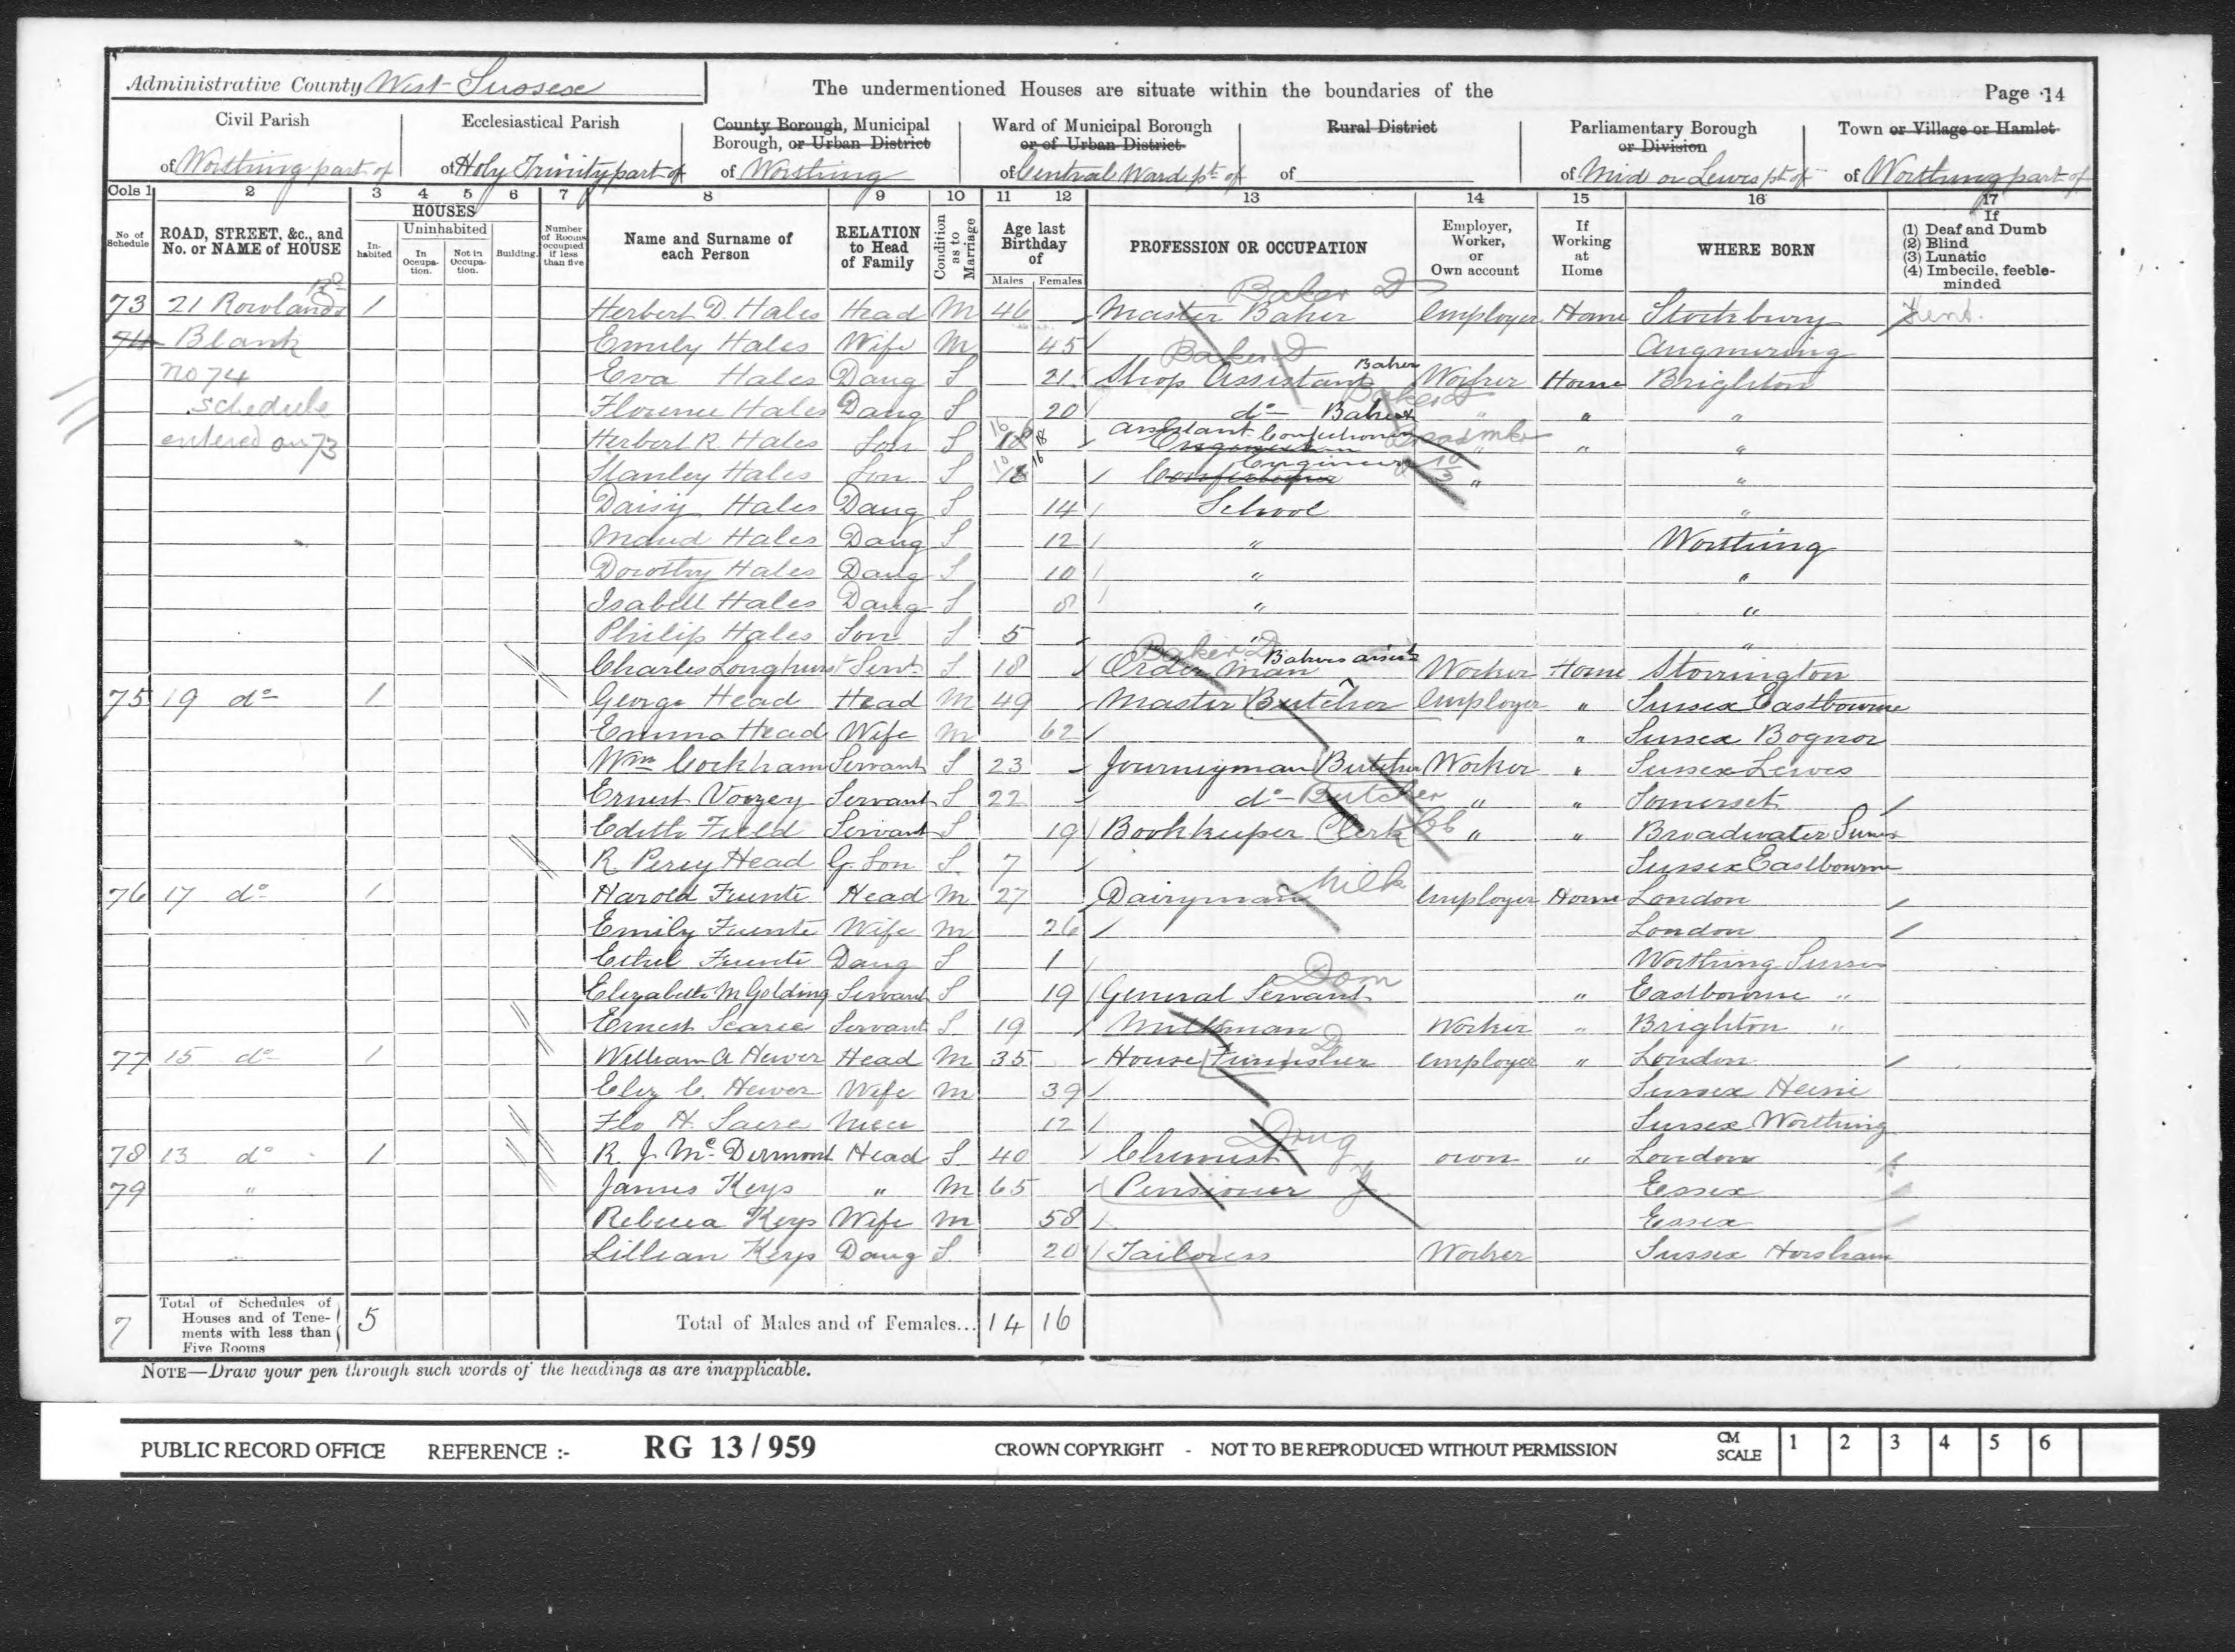 Administrative County West Sussex The undermentioned Houses are situate within the boundaries of the Page 14
Civil Parish Ecclesiastical Parish County Borough, Municipal Borough, or Urban District Ward of Municipal Borough or of Urban District Rural District Parliamentary Borough or Division Town or Village or Hamlet
of Worthing part of of Holy Trinity part of of Worthing of Central Ward pt of of of Mid or Lewes pt of of Worthing part of
Cols 1 2 3 4 5 6 7 8 9 10 11 12 13 14 15 16 17
No of Schedule ROAD, STREET, &c., and No. or NAME of HOUSE HOUSES In-habited Uninhabited In Occupa-tion. Not in Occupa-tion. Building. Number of Rooms occupied if less than five Name and Surname of each Person RELATION to Head of Family Condition as to Marriage Age last Birthday of Males Females PROFESSION OR OCCUPATION Employer, Worker, or Own account If Working at Home WHERE BORN If (1) Deaf and Dumb (2) Blind (3) Lunatic (4) Imbecile, feeble-minded
Baker D
73 21 Rowlands Rd 1 Herbert D. Hales Head M 46 Master Baker Employer Home Stockbury Kent.
74 Blank Emily Hales Wife M 45 Angmering
Baker D
no 74 Eva Hales Daug S 21 Shop Assistant Baker Worker Home Brighton
schedule Florence Hales Daug S 20 do Baker " " "
entered on 73 Herbert R. Hales Son S 18 Assistant Confectioner " " "
Stanley Hales Son S 16 Engineer Confectioner " "
Daisy Hales Daug S 14 School "
Maud Hales Daug S 12 " Worthing
Dorothy Hales Daug S 10 " "
Isabell Hales Daug S 8 " "
Philip Hales Son S 5 " "
Baker D
Charles Longhurst Servt S 18 Order Man Bakers assist Worker Home Storrington
75 19 do 1 George Head Head M 49 Master Butcher Employer " Sussex Eastbourne
Emma Head Wife M 62 " Sussex Bognor
Wm Cockham Servant S 23 Journeyman Butcher Worker " Sussex Lewes
Ernest Voizey Servant S 22 do Butcher " " Somerset
Edith Field Servant S 19 Bookkeeper Clerk " " Broadwater Sussex
R Percy Head G. Son S. 7 Sussex Eastbourne
76 17 do 1 Harold Fuente Head M 27 Dairyman Milk Employer Home London
Emily Fuente Wife M 26 London
Ethel Fuente Daug S 1 Worthing Sussex
Dom
Elizabeth M Golding Servant S 19 General Servant " Eastbourne "
Ernest Searie Servant S. 19 Milkman Worker " Brighton "
77 15 do 1 William A Hewer Head M 35 House Furnisher D Employer " London
Eliz C. Hewer Wife M 39 Sussex Heene
Flo H. Sacre Niece 12 Sussex Worthing
Drug
78 13 do 1 R. J. Mc Dermont Head S 40 Chemist own " London
79 " James Keys " M 65 Pensioner Essex
" Rebecca Keys Wife M 58 Essex
" Lillian Keys Daug S. 20 Tailoress Worker Sussex Horsham
7 Total of Schedules of Houses and of Tene-ments with less than Five Rooms 5 Total of Males and of Females... 14 16
NOTE—Draw your pen through such words of the headings as are inapplicable.
PUBLIC RECORD OFFICE REFERENCE :- RG 13 / 959 CROWN COPYRIGHT - NOT TO BE REPRODUCED WITHOUT PERMISSION CM SCALE 1 2 3 4 5 6